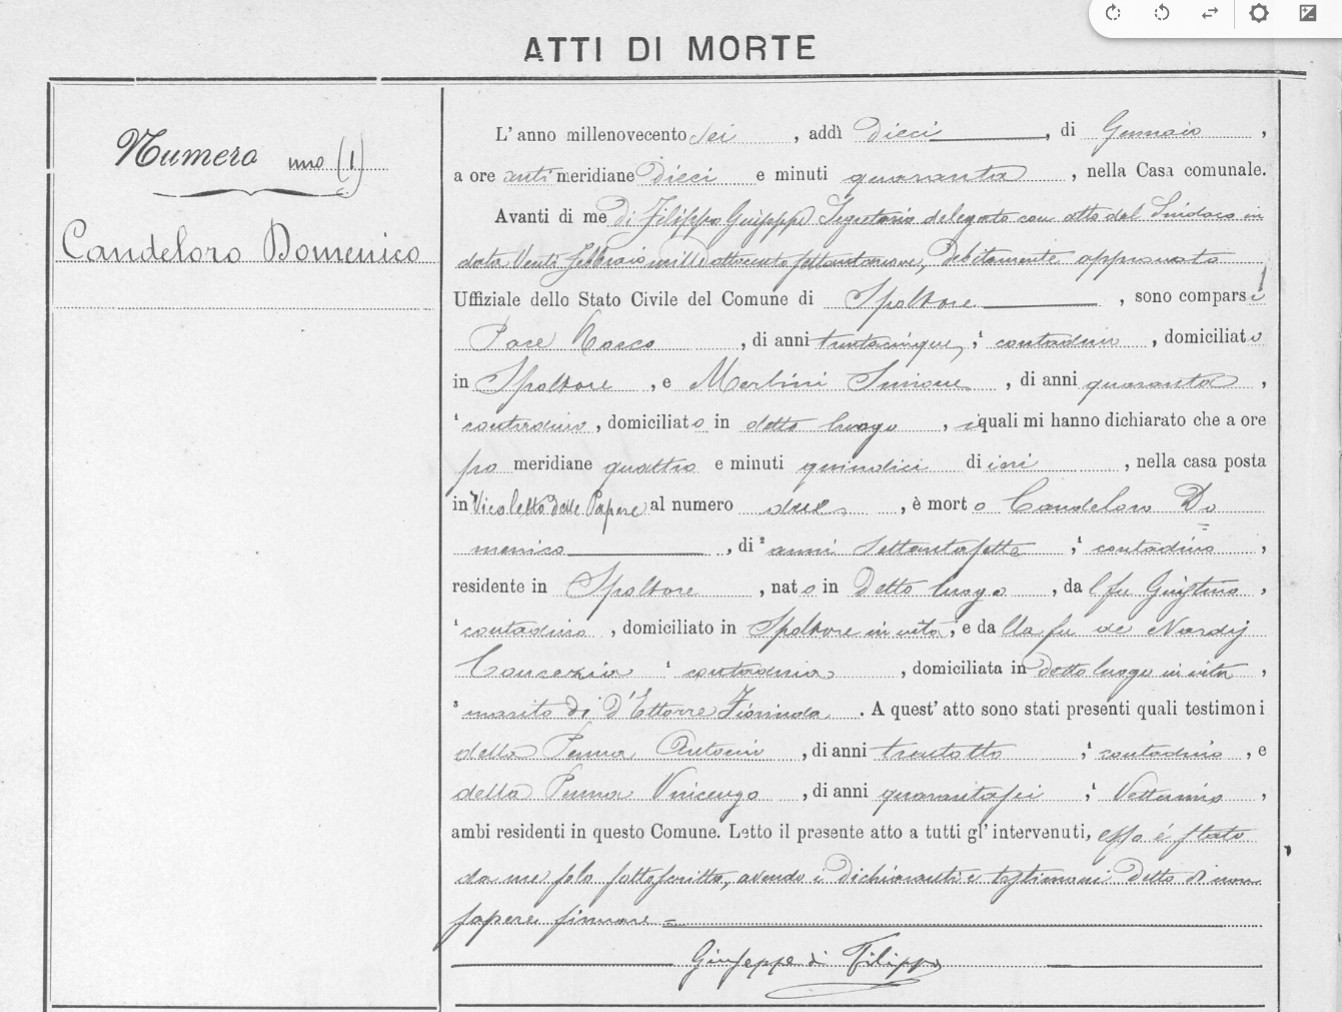 ATTI DI MORTE
Numero uno (1)
Candeloro Domenico
L'anno millenovecento sei, addì dieci, di Gennaio,
a ore anti meridiane dieci e minuti quaranta, nella Casa comunale.
Avanti di me di Filippo Giuseppe Segretario delegato con atto del Sindaco in
data Venti febbraio mille ottocento settantanove, debitamente approvato
Uffiziale dello Stato Civile del Comune di Spoltore, sono comparsi
Pace Rocco, di anni trentacinque, contadino, domiciliato
in Spoltore, e Merlini Simone, di anni quaranta,
contadino, domiciliato in detto luogo, i quali mi hanno dichiarato che a ore
po meridiane quattro e minuti quindici di ieri, nella casa posta
in Vicoletto delle Papere al numero due, è morto Candeloro Do
menico, di anni settantasette, contadino,
residente in Spoltore, nato in detto luogo, dal fu Giustino,
contadino, domiciliato in Spoltore in vita, e dalla fu de Nardis
Concezia contadina, domiciliata in detto luogo in vita,
marito di D'Ettorre Fiorinda. A quest'atto sono stati presenti quali testimoni
della Penna Antonio, di anni trentotto, contadino, e
della Penna Vincenzo, di anni quarantasei,
ambi residenti in questo Comune. Letto il presente atto a tutti gl'intervenuti, esso è stato
da me solo sottoscritto, avendo i dichiaranti e testimoni detto di non
sapere firmare =
Giuseppe di Filippo